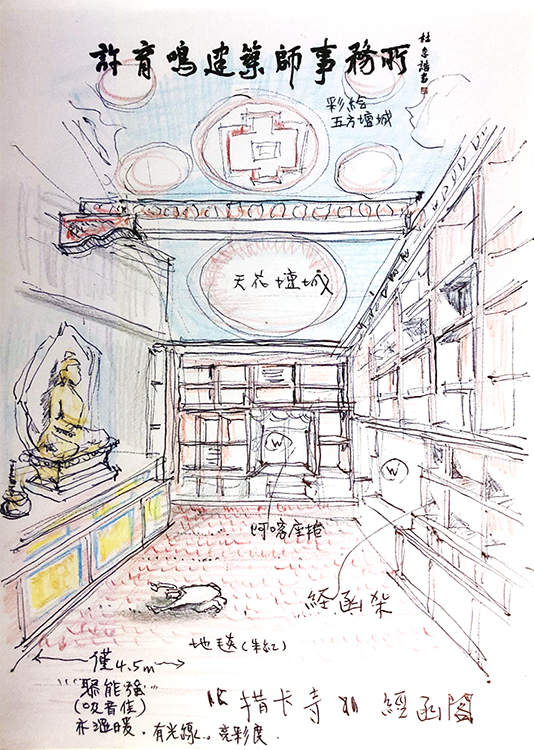 許育鳴建築師事務所
彩繪
五方壇城
天花壇城
W
W
經函架
地毯(朱紅)
僅4.5m
聚能強
(吹音佳)
亦溫暖,有光線、亮彩度.
"措卡寺" 經函閣